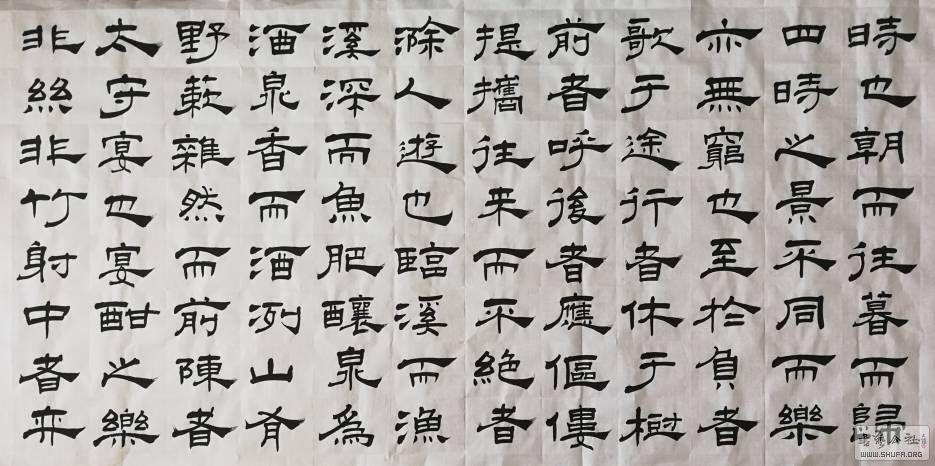 時也朝而往暮而歸
四時之景不同而樂
亦無窮也至於負者
歌于途行者休于樹
前者呼後者應傴僂
提攜往来而不絕者
滁人遊也臨溪而漁
溪深而魚肥釀泉為
酒泉香而酒冽山肴
野蔌雜然而前陳者
太守宴也宴酣之樂
非絲非竹射中者弈
WWW.SHUFA.ORG